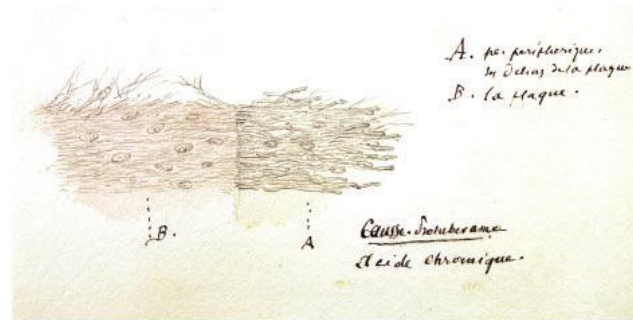 A. pe. peripherique.
en dehors de la plaque
B. la plaque.
B.
A
Causse. Protuberance
Acide chromique.